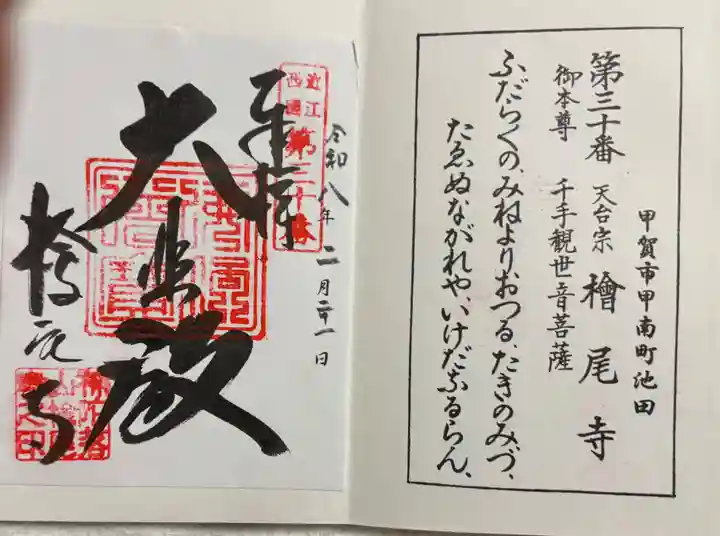 甲賀市甲南町池田
第三十番 天台宗 檜尾寺
御本尊 千手観世音菩薩
ふだらくの、みねよりおつる、たきのみづ、
たゑぬながれや、いけだなるらん、
近江
西國
第三十番
令和八年二月二十一日
奉拝
大悲殿
檜尾寺